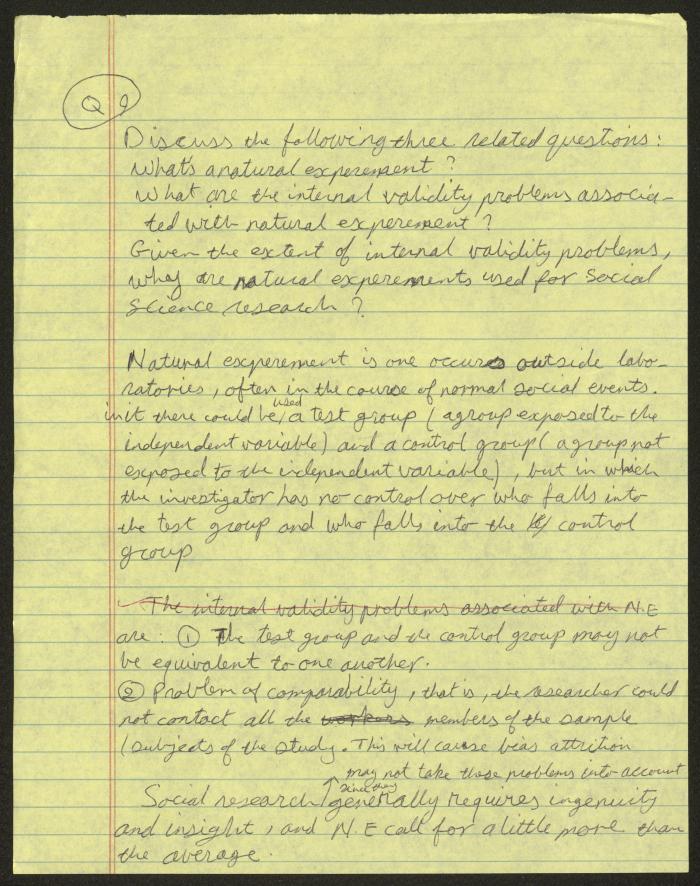 Q 9
Discuss the following three related questions:
What's a natural experement?
What are the internal validity problems associa-
ted with natural experement?
Given the extent of internal validity problems,
whey are natural experements used for Social
Science research?
Natural experement is one occures outside labo-
ratories, often in the course of normal social events.
in it there could be used a test group (a group exposed to the
independent variable) and a control group (a group not
exposed to the independent variable), but in which
the investigator has no control over who falls into
the test group and who falls into the control
group
The internal validity problems associated with N.E
are: ① The test group and the control group may not
be equivalent to one another.
② Problem of comparability, that is, the researcher could
not contact all the workers members of the sample
(subjects of the study. This will cause bias attrition
may not take these problems into account
Social research since they generally requires ingenuity
and insight, and N.E call for a little more than
the average.